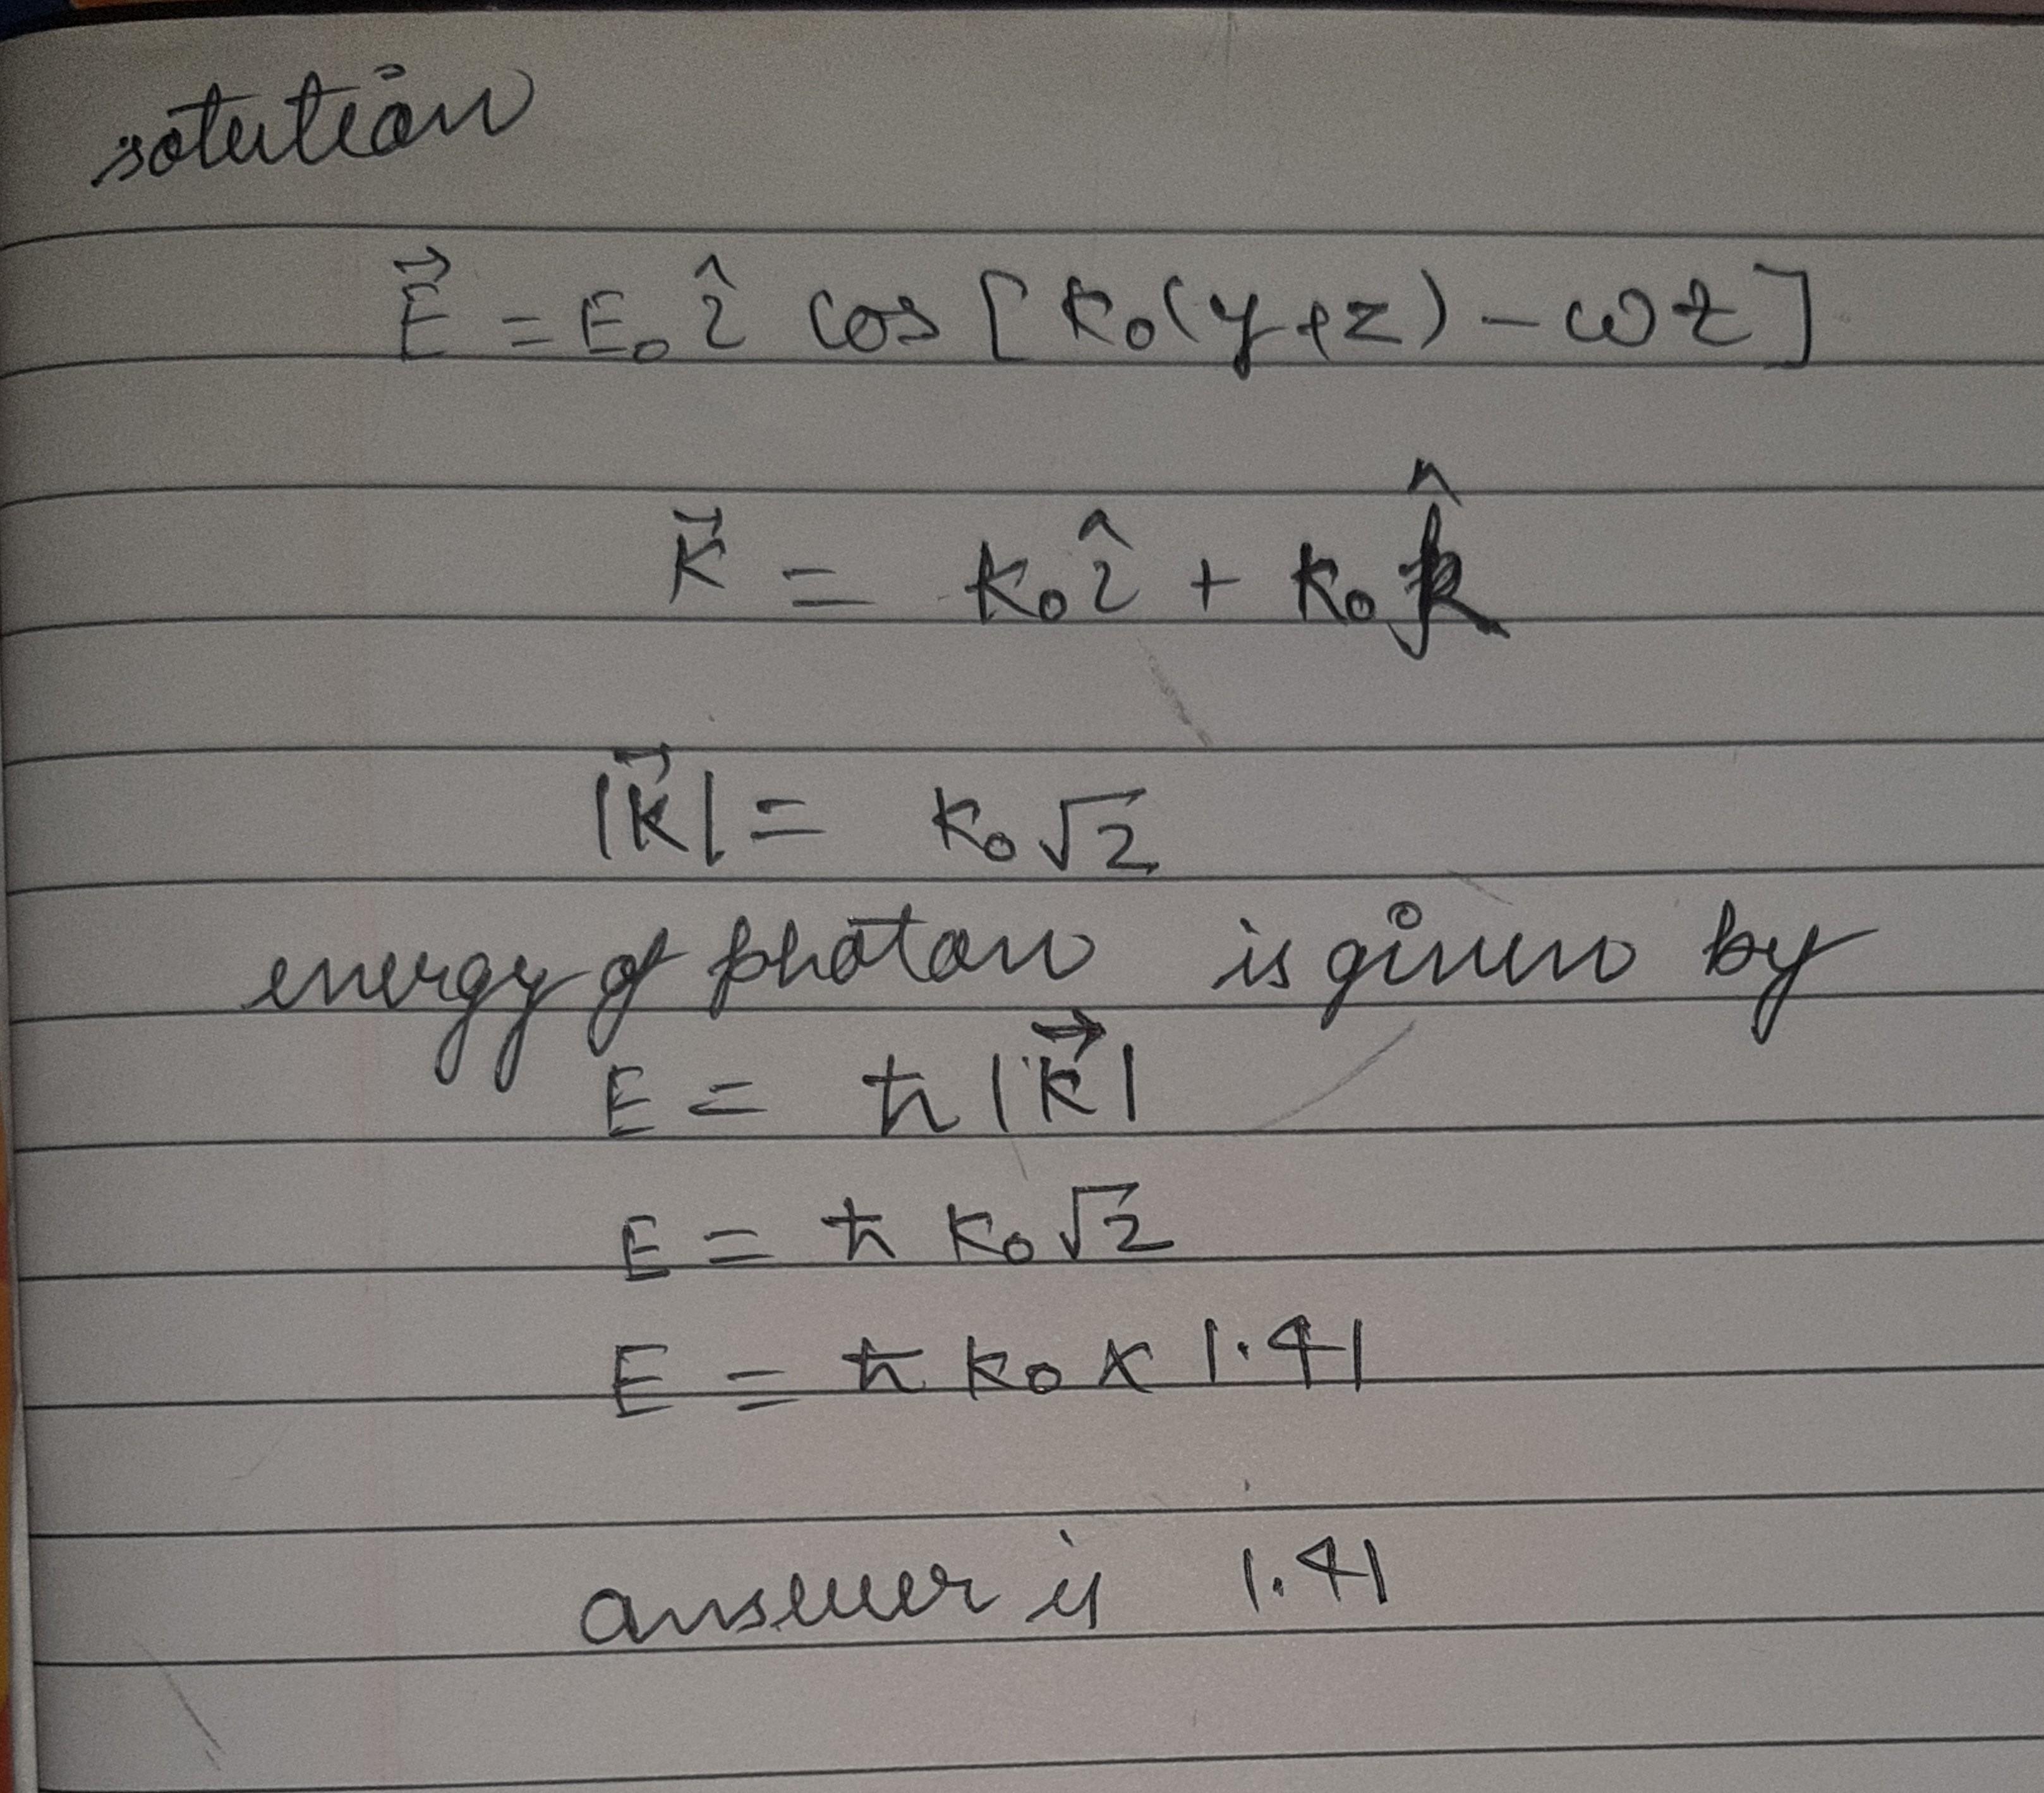 solution
E⃗ = E₀ î cos [k₀(y+z) - ωt]
K⃗ = k₀ î + k₀ k̂
|K⃗| = k₀√2
energy of photon is given by
E = ħ |K⃗|
E = ħ k₀√2
E = ħ k₀ × 1.41
answer is 1.41